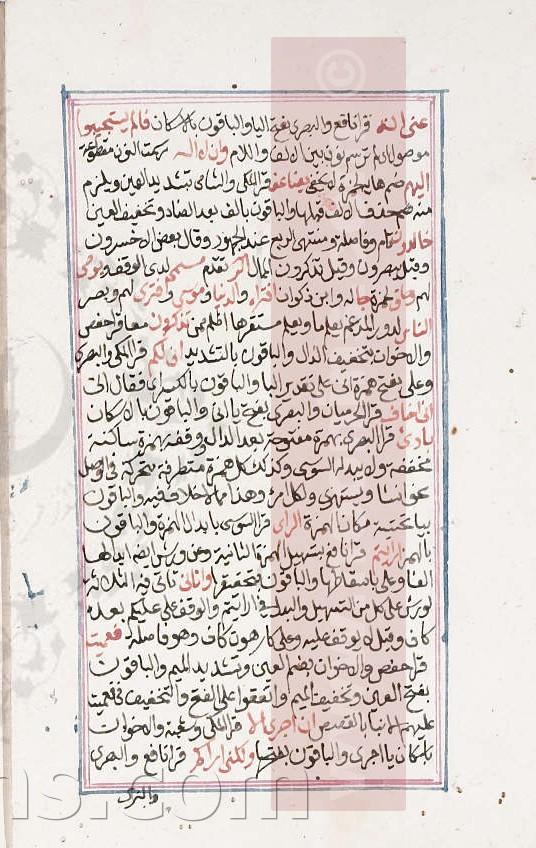 عني انه قرا نافع والبصري بفتح اليا والباقون بالاسكان فالم يستجيبوا
موصولا لم ترسم نون بين الالف واللام وان لا اله رسمت النون مقطوعة
اليهم ضم هاءه حمزة لا يخفى يضاعف قرا المكي والشامي بتشديد العين ويلزم
منه حذف الالف قبلها والباقون بالف بعد الضاد وتخفيف العين
خالدون تام وفاصلة ومنتهى الربع عند الجمهور وقال بعض الاخسرون
وقيل يبصرون وقيل تذكرون الممال تقدم مسمى لدى الوقف ويوحى
لهم وحاق لحمزة جا له وابن ذكوان افتراه والدنيا وموسى وافترى لهم وبصر
الناس لدور المدغم يعلم ما ويعلم مستقرها اظلم ممن تذكرون معا قرا حفص
والاخوان بتخفيف الذال والباقون بالتشديد اني لكم قرا المكي والبصري
وعلي بفتح همزة اني على تقدير البا والباقون بالكسر اي فقال اني
اني اخاف قرا الحرميان والبصري بفتح يا اني والباقون بالاسكان
بادي قرا البصري بهمزة مفتوحة بعد الدال وقفه بهمزة ساكنة
محققة ولا يبدله السوسي وكذلك كل همزة متطرفة متحركة في الوصل
نحو انشا ويستهزي ولكل امرئ وهذا مما لا خلاف فيه والباقون
بيا تحتية مكان الهمزة الراي قرا السوسي بابدال الهمزة والباقون
بالهمز ارايتم قرا نافع بتسهيل الهمزة الثانية وعن ورش ايضا ابدالها
الفا وعلي باسقاطها والباقون بتحقيقها واتاني تاتي فيه الثلاثة
لورش على كل من التسهيل والبدل في ارايتم والوقف على عليكم بعده
كاف وقيل لا يوقف عليه وعلى كارهون كاف وهو فاصلة فعميت
قرا حفص والاخوان بضم العين وتشديد الميم والباقون
بفتح العين وتخفيف الميم واتفقوا على الفتح والتخفيف في فعميت
عليهم الانبا بالقصص ان اجري الا قرا المكي وشعبة والاخوان
باسكان يا اجري والباقون بفتحها ولكني اراكم قرا نافع والبصري
والبزي
ns.com